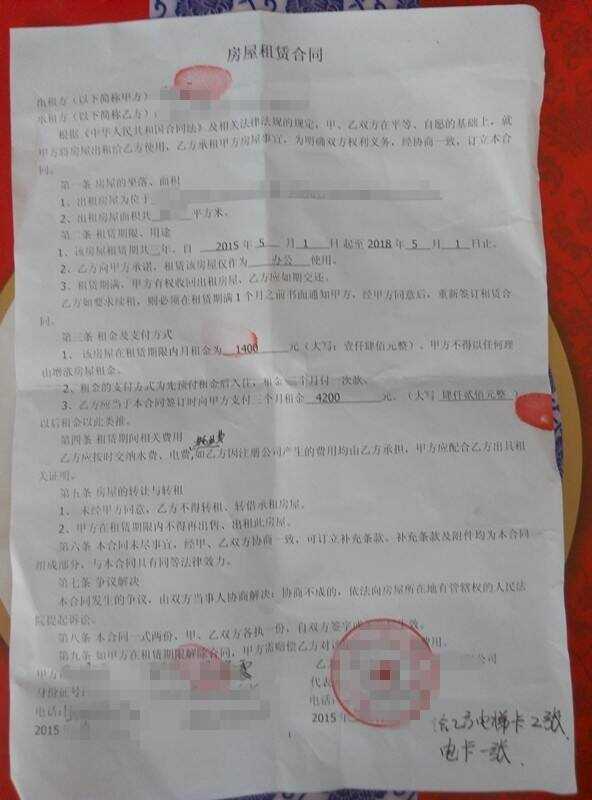 房屋租赁合同
出租方（以下简称甲方）
承租方（以下简称乙方）：
根据《中华人民共和国合同法》及相关法律法规的规定，甲、乙双方在平等、自愿的基础上，就
甲方将房屋出租给乙方使用、乙方承租甲方房屋事宜，为明确双方权利义务，经协商一致，订立本合
同。
第一条 房屋的坐落、面积
1、出租房屋为位于
2、出租房屋面积共 平方米。
第二条 租赁期限、用途
1、该房屋租赁期共三年。自 2015 年 5 月 1 日 起至 2018 年 5 月 1 日止。
2、乙方向甲方承诺，租赁该房屋仅作为 办公 使用。
3、租赁期满，甲方有权收回出租房屋，乙方应如期交还。
乙方如要求续租，则必须在租赁期满 1 个月之前书面通知甲方，经甲方同意后，重新签订租赁合
同。
第三条 租金及支付方式
1、该房屋在租赁期限内月租金为 1400 元（大写：壹仟肆佰元整）、甲方不得以任何理
由增涨房屋租金。
2、租金的支付方式为先预付租金后入住，租金 三个月付一次款、
3、乙方应当于本合同签订时向甲方支付三个月租金 4200 元。（大写 肆仟贰佰元整 ）
以后租金以此类推。
第四条 租赁期间相关费用
乙方应按时交纳水费、电费,如乙方因注册公司产生的费用均由乙方承担，甲方应配合乙方出具相
关证明。
第五条 房屋的转让与转租
1、未经甲方同意，乙方不得转租、转借承租房屋。
2、甲方在租赁期限内不得再出售、出租此房屋。
第六条 本合同未尽事宜，经甲、乙双方协商一致，可订立补充条款。补充条款及附件均为本合同
组成部分，与本合同具有同等法律效力。
第七条 争议解决
本合同发生的争议，由双方当事人协商解决；协商不成的，依法向房屋所在地有管辖权的人民法
院提起诉讼。
第八条 本合同一式两份，甲、乙双方各执一份，自双方签字 生效。
第九条 如甲方在租赁期限解除合同，甲方需赔偿乙方对 费用。
甲方 乙 公司
身份证号： 代表
电话： 电话：
2015 2015 年
给乙方电梯卡2张
电卡一张
1